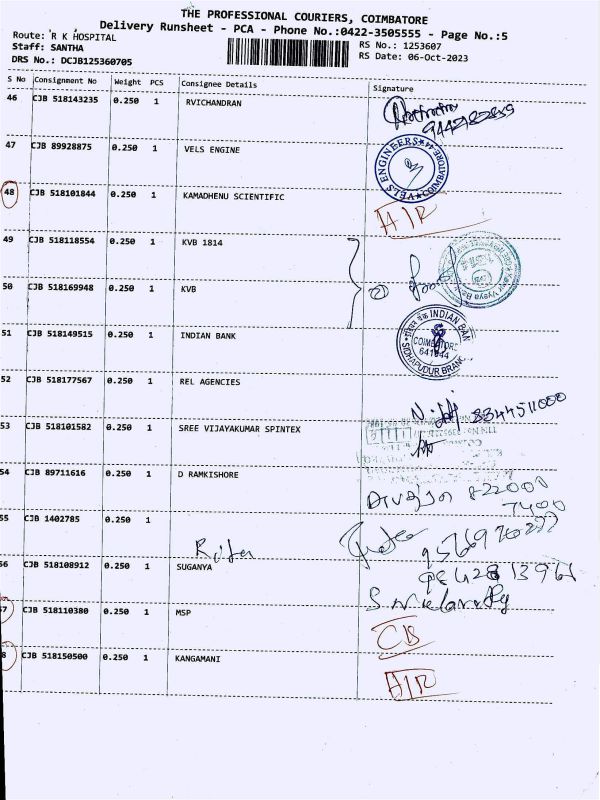 THE PROFESSIONAL COURIERS, COIMBATORE
Delivery Runsheet - PCA - Phone No.:0422-3505555 - Page No.:5
Route: R K HOSPITAL
Staff: SANTHA
DRS No.: DCJB125360705
RS No.: 1253607
RS Date: 06-Oct-2023
S No Consignment No Weight PCS Consignee Details Signature
46 CJB 518143235 0.250 1 RVICHANDRAN
47 CJB 89928875 0.250 1 VELS ENGINE
VELS ENGINEERS COIMBATORE-44
48 CJB 518101844 0.250 1 KAMADHENU SCIENTIFIC
A/R
49 CJB 518118554 0.250 1 KVB 1814
50 CJB 518169948 0.250 1 KVB
2
51 CJB 518149515 0.250 1 INDIAN BANK
INDIAN BAN
COIMBATORE
641044
SIDHAPUDUR BRAN
52 CJB 518177567 0.250 1 REL AGENCIES
8344511000
53 CJB 518101582 0.250 1 SREE VIJAYAKUMAR SPINTEX
54 CJB 89711616 0.250 1 D RAMKISHORE
822000
7400
55 CJB 1402785 0.250 1
56 CJB 518108912 0.250 1 SUGANYA
57 CJB 518110380 0.250 1 MSP
CB
8 CJB 518150500 0.250 1 KANGAMANI
A/R